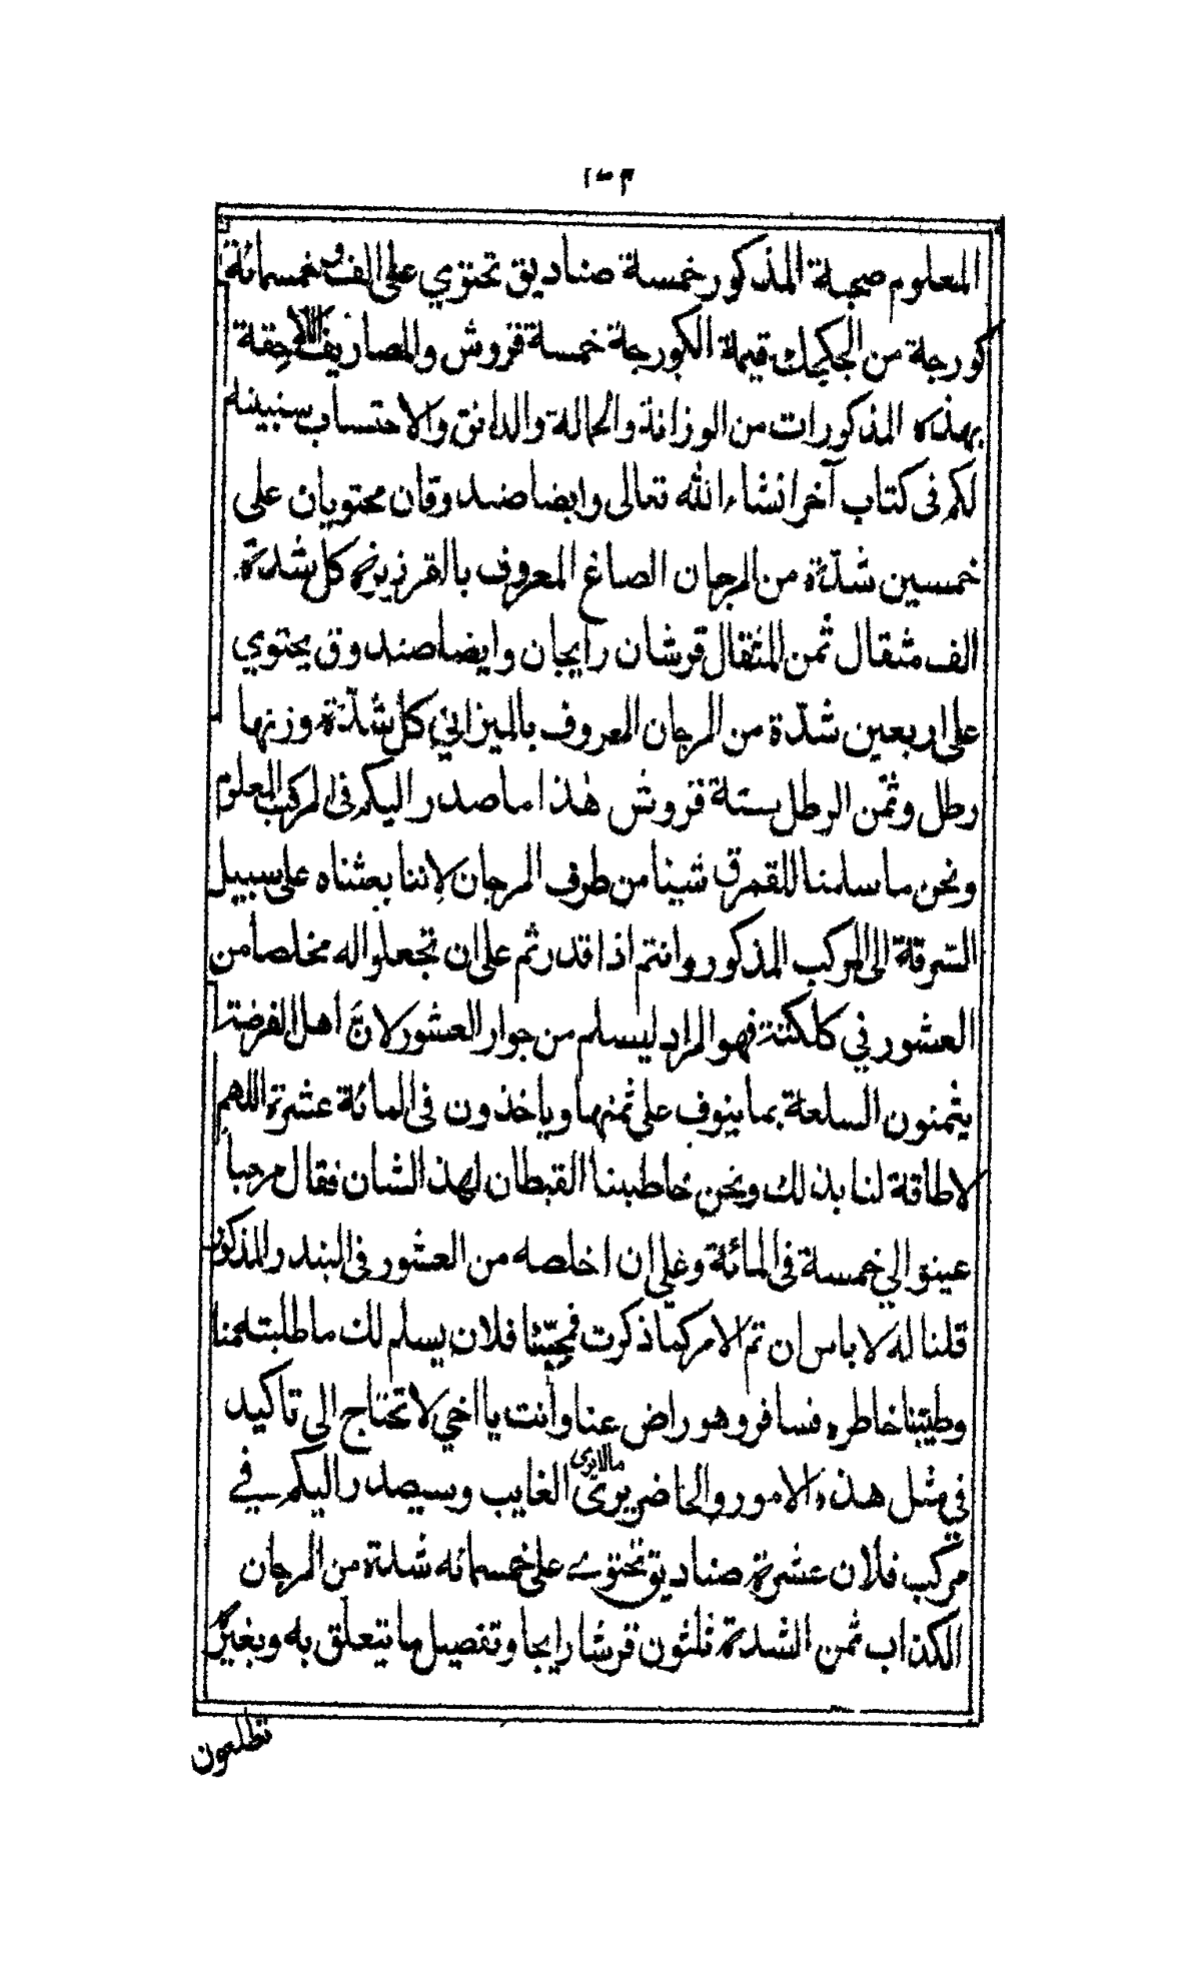 ١٠٣
المعلوم صحبة المذكور خمسة صناديق تحتوي على الف و خمسمائة
كورجة من الجكمك قيمة الكورجة خمسة قروش والمصاريف اللاحقة
بهذه المذكورات من الوزانة والحمالة والدانق والاحتساب سنبينه
لكم فى كتاب آخر انشاء الله تعالى وايضا صندوقان محتويان على
خمسين شدّة من المرجان الصاغ المعروف بالقرزيزي كل شدة
الف مثقال ثمن المثقال قرشان رايجان وايضا صندوق يحتوي
على اربعين شدّة من المرجان المعروف بالميزاني كل شدّة وزنها
رطل وثمن الرطل بستة قروش هذا ما صدر اليكم فى المركب المعلوم
ونحن ما سلمنا للقمرق شيئا من طرف المرجان لاننا بعثناه على سبيل
السّرقة الى المركب المذكور وانتم اذا قدرتم على ان تجعلوا له مخلصا من
العشور في كلكتة فهو المراد ليسلم من جوار العشور لانّ اهل الفرضة
يثمنون السلعة بما ينوف على ثمنها وياخذون فى المائة عشرة اللهم
لا طاقة لنا بذلك ونحن خاطبنا القبطان لهذ الشان فقال مرحبا
عينوا لي خمسة فى المائة وعلي ان اخلصه من العشور فى البندر المذكور
قلنا له لا باس ان تم الامر كما ذكرت فمحبّنا فلان يسلم لك ما طلبته منا
وطيّبنا خاطره فسافر وهو راض عنا وأنت يا اخي لا تحتاج الى تاكيد
في مثل هذه الامور والحاضر يرى مالايرى الغايب وسيصدر اليكم في
مركب فلان عشرة صناديق تحتوي على خمسمائه شدة من المرجان
الكذاب ثمن الشدة ثلثون قرشا رايجا وتفصيل ما يتعلق به وبغيره
تطلعون